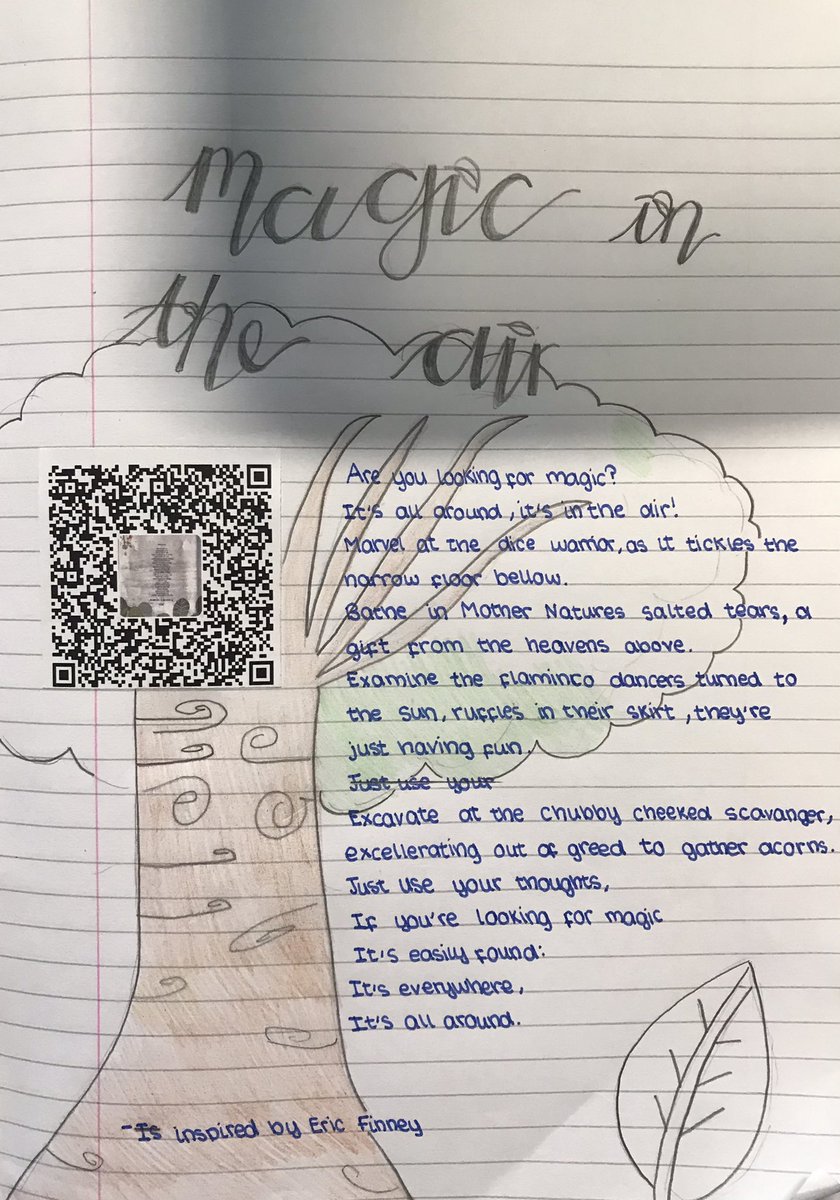 magic in
the air
Are you looking for magic?
It's all around, it's in the air!
Marvel at the dice warrior, as it tickles the
narrow floor bellow.
Bathe in Mother Natures salted tears, a
gift from the heavens above.
Examine the flaminco dancers turned to
the sun, ruffles in their skirt, they're
just having fun.
Just use your
Excavate at the chubby cheeked scavanger,
excellerating out of greed to gather acorns.
Just use your thoughts,
If you're looking for magic
It's easily found:
It's everywhere,
It's all around.
-Is inspired by Eric Finney